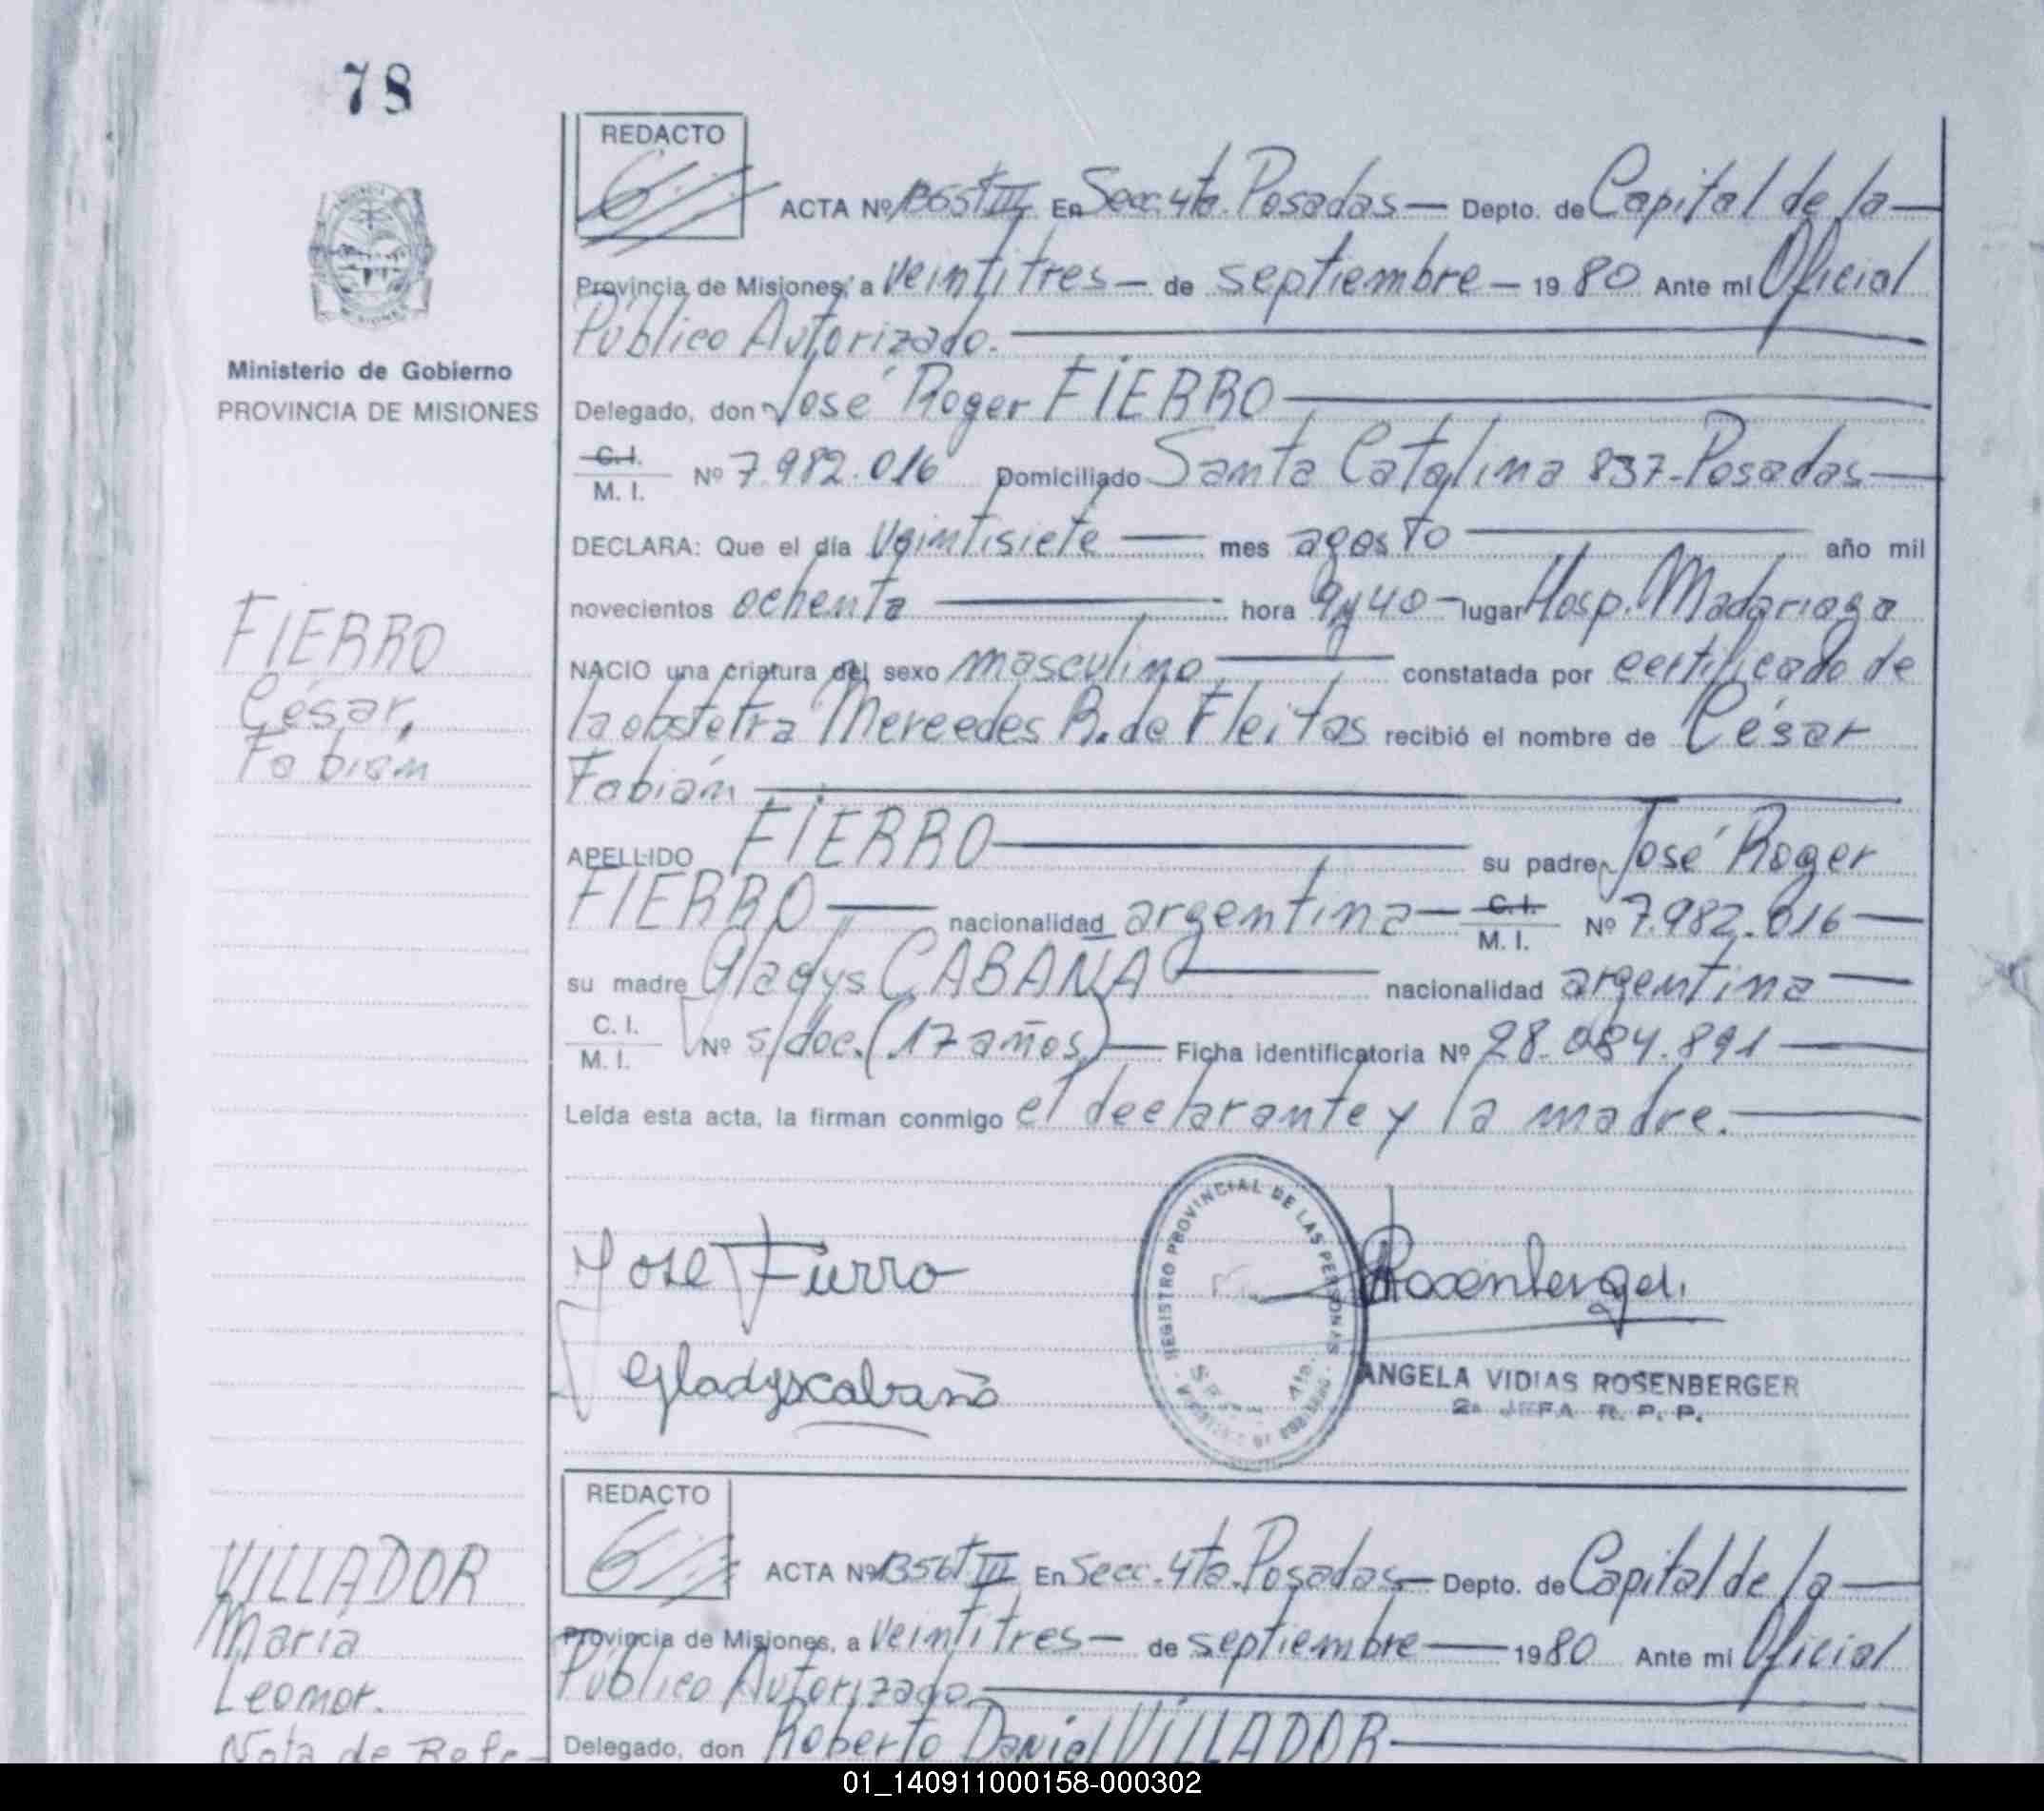 78
REDACTO
ACTA Nº 1355 T III En Secc. 4ta. Posadas — Depto. de Capital de la —
Provincia de Misiones, a veintitres — de septiembre — 1980 Ante mi Oficial
Público Autorizado.
Ministerio de Gobierno
PROVINCIA DE MISIONES
Delegado, don José Roger FIERRO
C.I.
M. I. Nº 7.982.016 Domiciliado Santa Catalina 837-Posadas —
DECLARA: Que el día veintisiete — mes agosto — año mil
novecientos ochenta — hora 9y40 — lugar Hosp. Madariaga
NACIO una criatura del sexo masculino — constatada por certificado de
la obstetra Mercedes B. de Fleitas recibió el nombre de César
Fabián
FIERRO
César,
Fabián
APELLIDO FIERRO — su padre José Roger
FIERRO — nacionalidad argentina — C.I.
M. I. Nº 7.982.016 —
su madre Gladys CABAÑA — nacionalidad argentina —
C. I.
M. I. Nº s/doc. (17 años) — Ficha identificatoria Nº 28.084.891 —
Leída esta acta, la firman conmigo el declarante y la madre. —
Jose Fierro
Gladys cabaña
REGISTRO PROVINCIAL DE LAS PERSONAS
Rosenberger.
ANGELA VIDIAS ROSENBERGER
2a JEFA R. P. P.
REDACTO
ACTA Nº 1356 T III En Secc. 4ta. Posadas — Depto. de Capital de la —
Provincia de Misiones, a veintitres — de septiembre — 1980 Ante mi Oficial
Público Autorizado.
Delegado, don Roberto Daniel VILLADOR
VILLADOR
María
Leonor.
Nota de Refe-
01_140911000158-000302